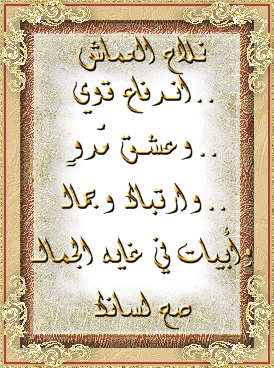 فلاح القماش
.. اندفاع قوي
.. وعشق مَروٍ
.. وارتباك وجمال
وأبيات في غايه الجمال
صح لسانك